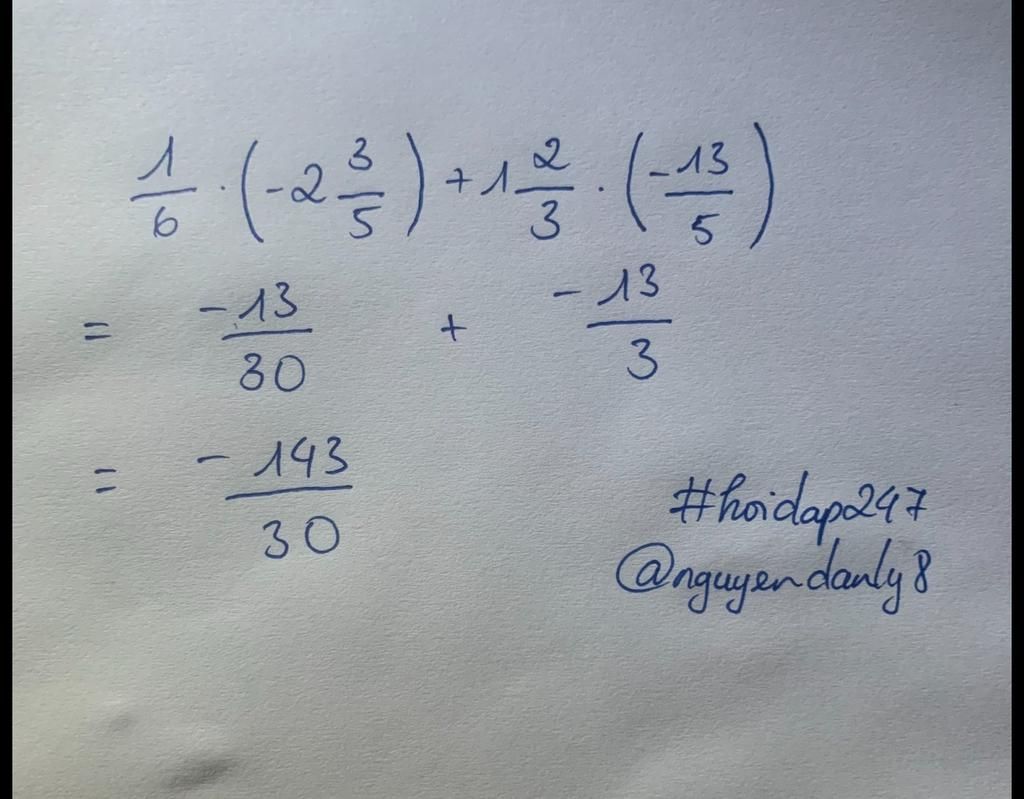 1/6 · (-2 3/5) + 1 2/3 · (-13/5)
= -13/30 + -13/3
= -143/30
#hoidap247
@nguyendanly8